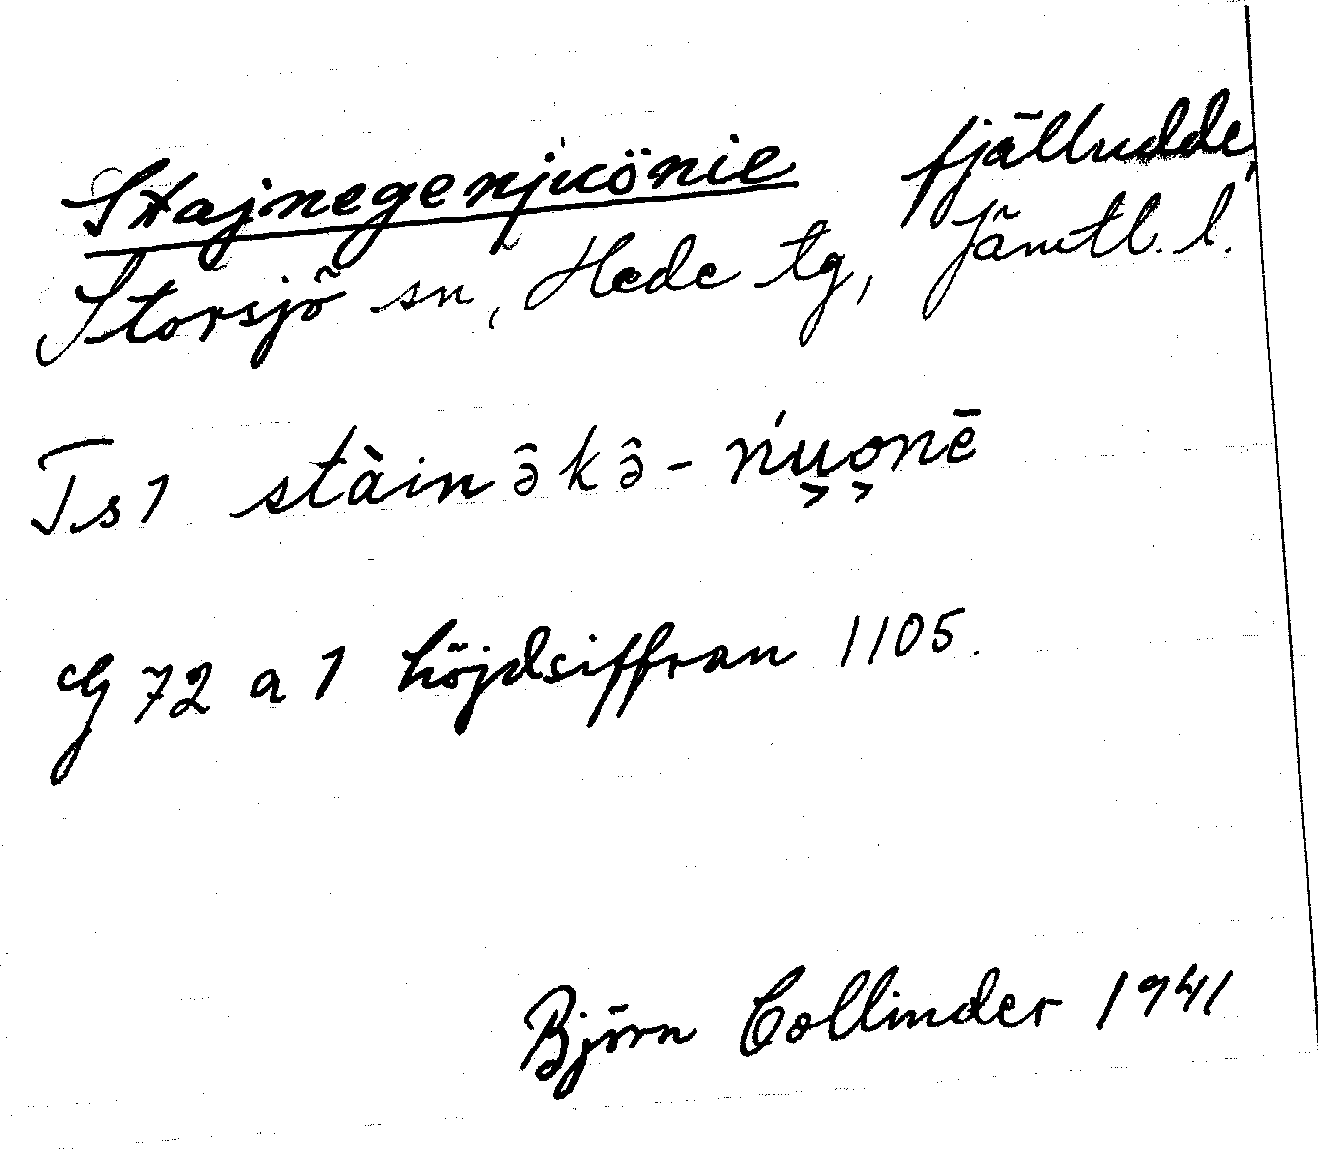 Stajnegenjuönie fjälludde,
Storsjö sn, Hede tg, Jämtl. l.
Ts1 stàinə̂kə̂-ńu̬o̬nē
G 72 a 1 höjdsiffran 1105.
Björn Collinder 1941